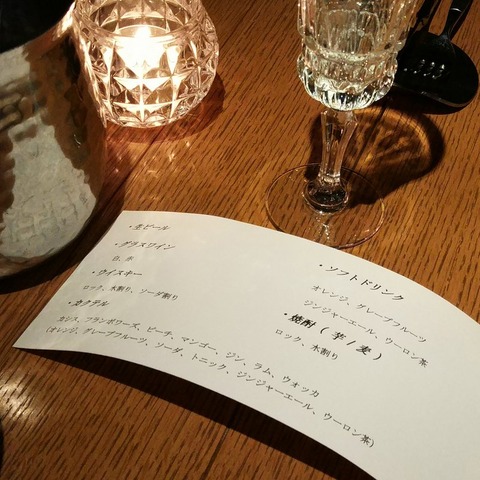 ・生ビール
・グラスワイン
白、赤
・ウイスキー
ロック、水割り、ソーダ割り
・カクテル
カシス、フランボワーズ、ピーチ、マンゴー、ジン、ラム、ウォッカ
(オレンジ、グレープフルーツ、ソーダ、トニック、ジンジャーエール、ウーロン茶)
・ソフトドリンク
オレンジ、グレープフルーツ
ジンジャーエール、ウーロン茶
・焼酎 ( 芋 / 麦 )
ロック、水割り